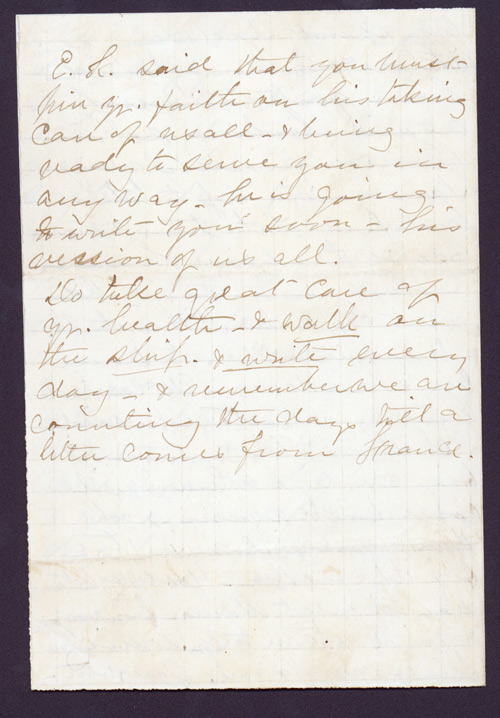 E. H. said that you must
pin yr. faith on his taking
care of us all - & being
ready to serve you in
any way - he is going
to write you soon - his
version of us all.
Do take great care of
yr. health - & walk on
the ship. & write every
day - & remember we are
counting the days till a
letter comes from France.